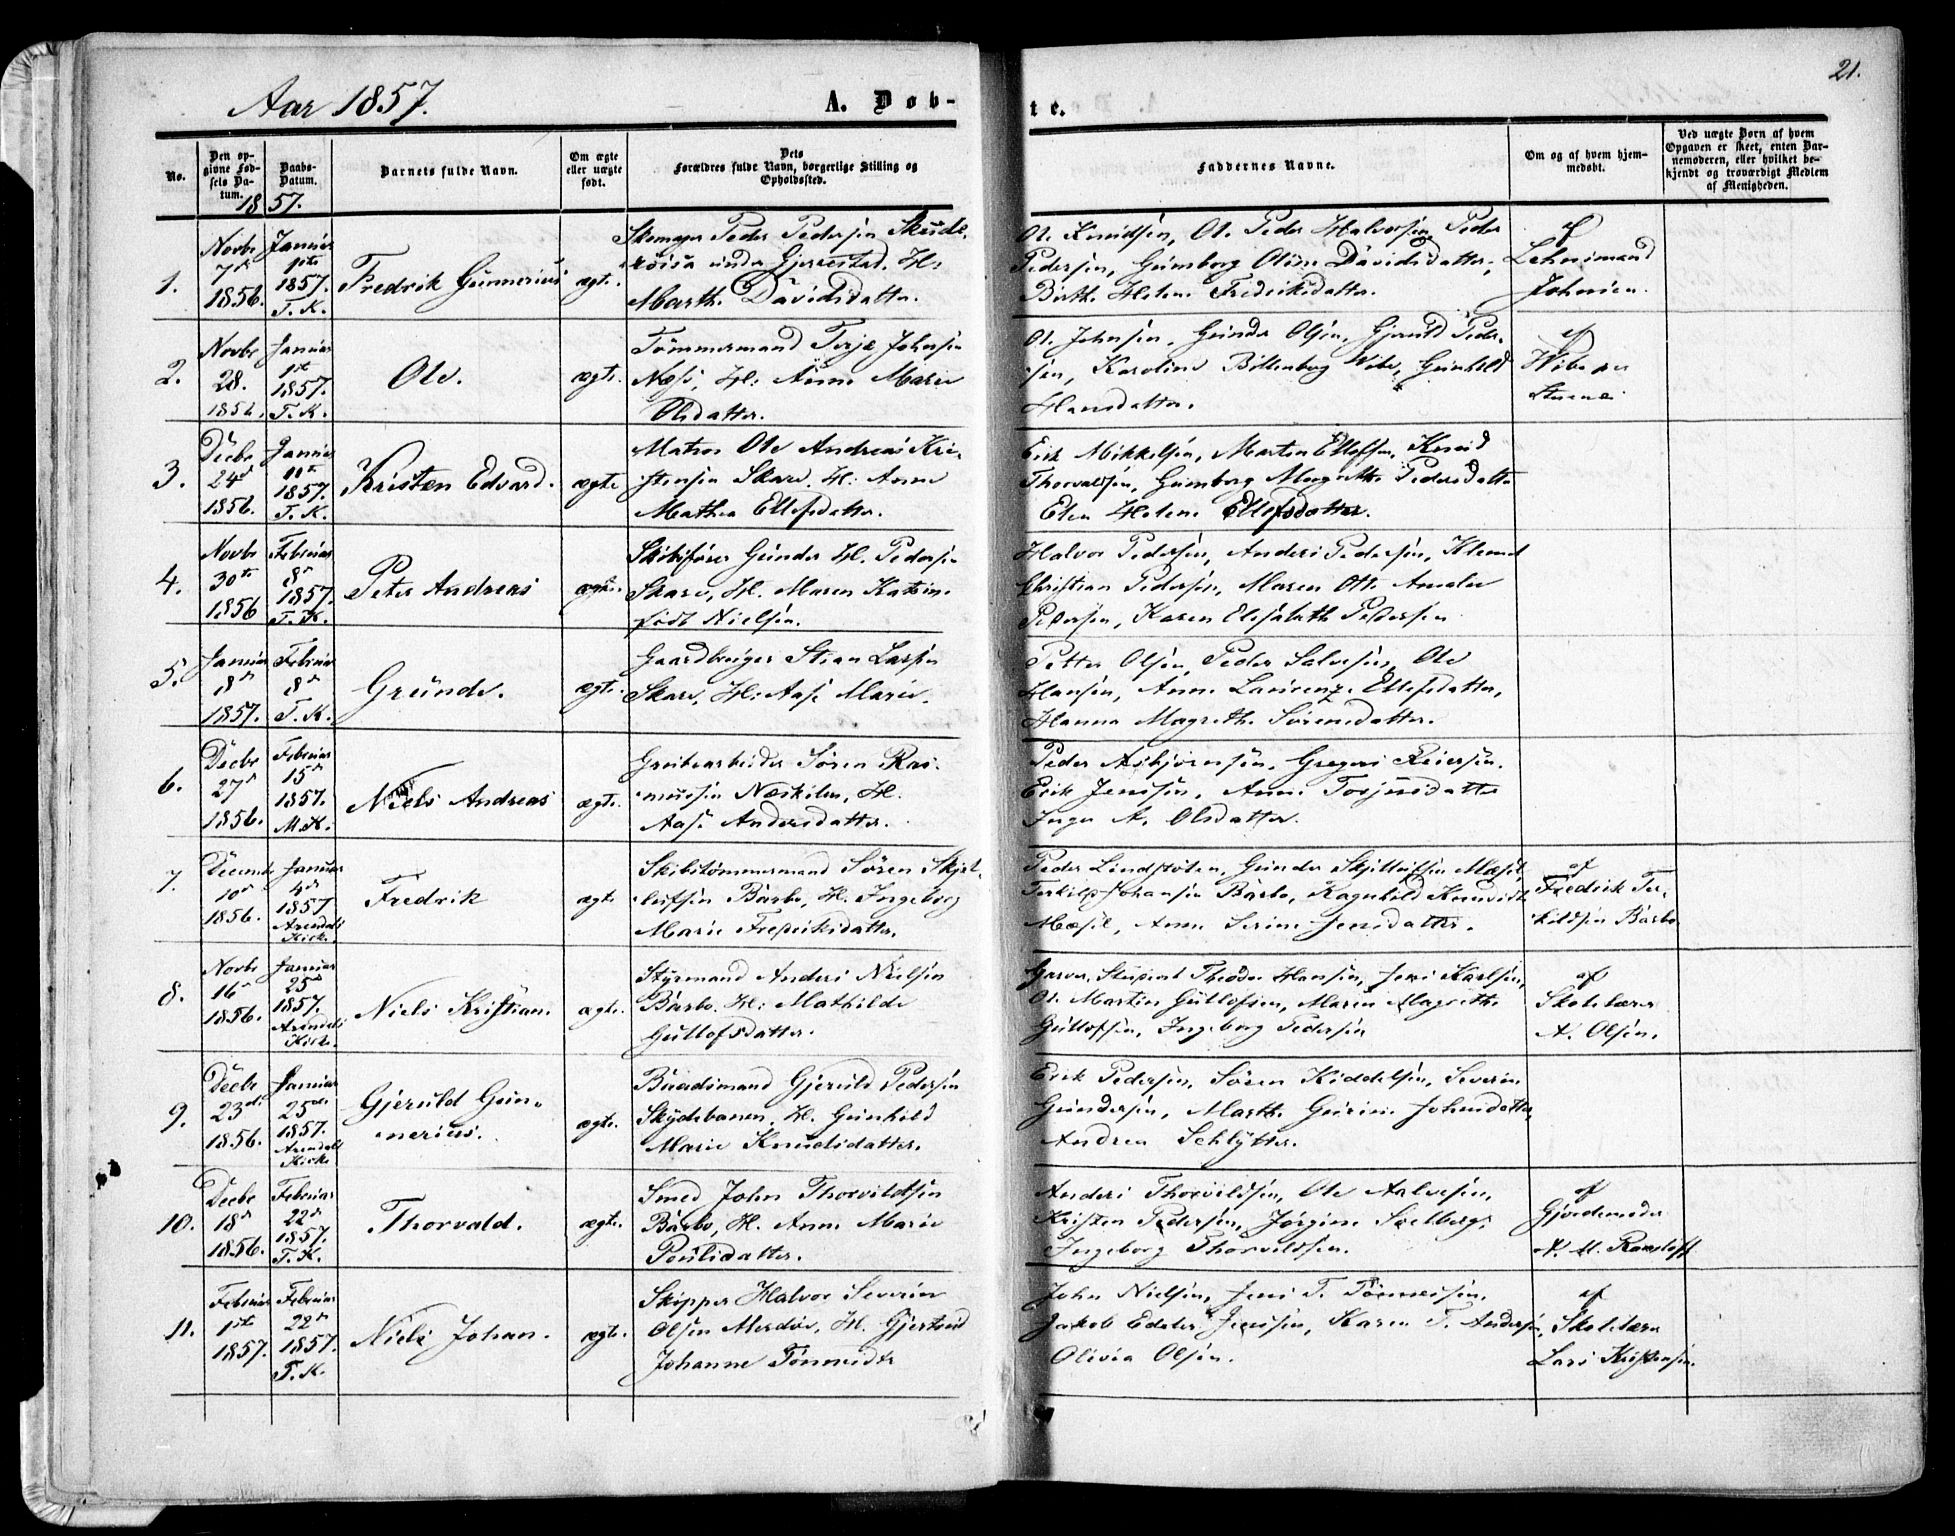 Aar 1857.
A. Døb-
te.
21.
No.
Den op-
givne Fød-
sels Da-
tum.
Daabs-
Datum.
1857.
Barnets fulde Navn.
Om ægte
eller uægte
født.
Dets
Forældres fulde Navn, borgerlige Stilling og
Opholdssted.
Faddernes Navne.
Om og af hvem hjem-
medøbt.
Ved uægte Børn af hvem
Opgaven er skeet, enten Bar-
nemoderen, eller hvilket be-
kjendt og troværdigt Medlem
af Menigheden.
1.
Novbr
7de
1856.
Januar
1ste
1857.
T. K.
Fredrik Gunnerius
ægte.
Skomager Peder Pedersen
under Gjerrestad. H:
Marthe Davidsdatter.
Ole Knudsen, Ole Peder Halvorsen, Peder
Pedersen, Gunborg Oline Davidsdatter,
Birthe Helene Fredriksdatter.
af
Lehnsmand
Johnsen.
2.
Novbr
28.
1856.
Januar
1ste
1857.
T. K.
Ole.
ægte.
Tømmermand Terje Johnsen
Næs, H: Anne Marie
Olsdatter.
Ole Johnsen, Gunder Olsen, Gjeruld Peder-
sen, Karoline Wibe, Gunhild
Hansdatter.
af
Wibe
3.
Decbr
24de
1856.
Januar
11te
1857.
T. K.
Kristen Edvard.
ægte
Matros Ole Andreas Kri-
stensen Skare, H: Anne
Mathea Ellefsdatter.
Erik Mikkelsen, Martin Ellefsen, Knud
Thorvaldsen, Gunborg Magrethe Pedersdatter
Elen Helene Ellefsdatter.
4.
Novbr
30te
1856
Februar
8de
1857.
T. K.
Peter Andreas
ægte.
Skibsfører Gunder H. Pedersen
Skare, H. Maren Katrine
født Nielsen.
Halvor Pedersen, Anders Pedersen, Klemet
Christian Pedersen, Maren Oth. Amalie
Pedersen, Karen Elisabeth Pedersen
5.
Januar
8de
1857.
Februar
8de
T. K.
Grunde.
ægte.
Gaardbruger Stian Larsen
Skare, H. Aase Marie.
Petter Olsen, Peder Salvesen, Ole
Hansen, Anne Laurenze Ellefsdatter,
Hanna Magrethe Sørensdatter.
6.
Decbr
27de
1856.
Februar
15de
1857.
M.K.
Niels Andreas
ægte.
Grubearbeider Søren Ras-
mussen Næskilen, H.
Aase Andersdatter.
Peder Asbjørnsen, Gregers Reiersen.
Erik Jenssen, Anne Torjusdatter
Inger A. Olsdatter.
7.
Decembr
10de
1856.
Januar
4de
1857
Arendals
Kirke.
Fredrik
ægte
Skibstømmermand Søren Skjel-
lufsen Barbo, H. Ingeborg
Marie Fredriksdatter.
Peder Lindstøten, Gunder Skjellufsen Mæsel,
Terkild Johansen Barbo, Ragnhild Knudsdtr
Mæsel, Anne Serine Jensdatter.
af
Fredrik Ter-
kildsen Barbo
8.
Novbr
16de
1856.
Januar
25de
1857.
Arendals
Kirke.
Niels Kristian.
ægte.
Styrmand Anders Nielsen
Barbo. H: Mathilde
Gullofsdatter.
Garver, Student Theodor Hansen, Jens Karlsen,
Ole Martin Gullofsen, Maren Magrethe
Gullofsen, Ingeborg Pedersen
af
Skolelærer
N. Olsen.
9.
Decbr
23de
1856.
Januar
25de
1857.
Arendals
Kirke
Gjeruld Gun-
nerius.
ægte.
Baadsmand Gjeruld Pedersen
Skydebanen, H. Gunhild
Marie Knudsdatter.
Erik Pedersen, Søren Kiddelsen, Severin
Gundersen, Marthe Gurine Johnsdatter,
Andrea Schlytter.
10.
Decbr
18de
1856.
Februar
22de
1857.
T. K.
Thorvald.
ægte.
Smed John Thorvildsen
Barbo, H. Anne Marie
Poulsdatter.
Anders Thorvildsen, Ole Aalvesen,
Kristen Pedersen, Jørgine Sælberg,
Ingeborg Thorvildsen.
af
Gjordemoder
11.
Februar
1ste
1857.
Februar
22de
1857.
T. K.
Niels Johan.
ægte.
Skipper Halvor Severin
Olsen Merdøe, H. Gjertrud
Johanne Tønnesdtr
John Nielsen, Jens T. Tønnesen.
Jakob Edeler Jenssen, Karen T. Andersen,
Olivia Olsen.
af
Skolelærer
Lars Kristensen.